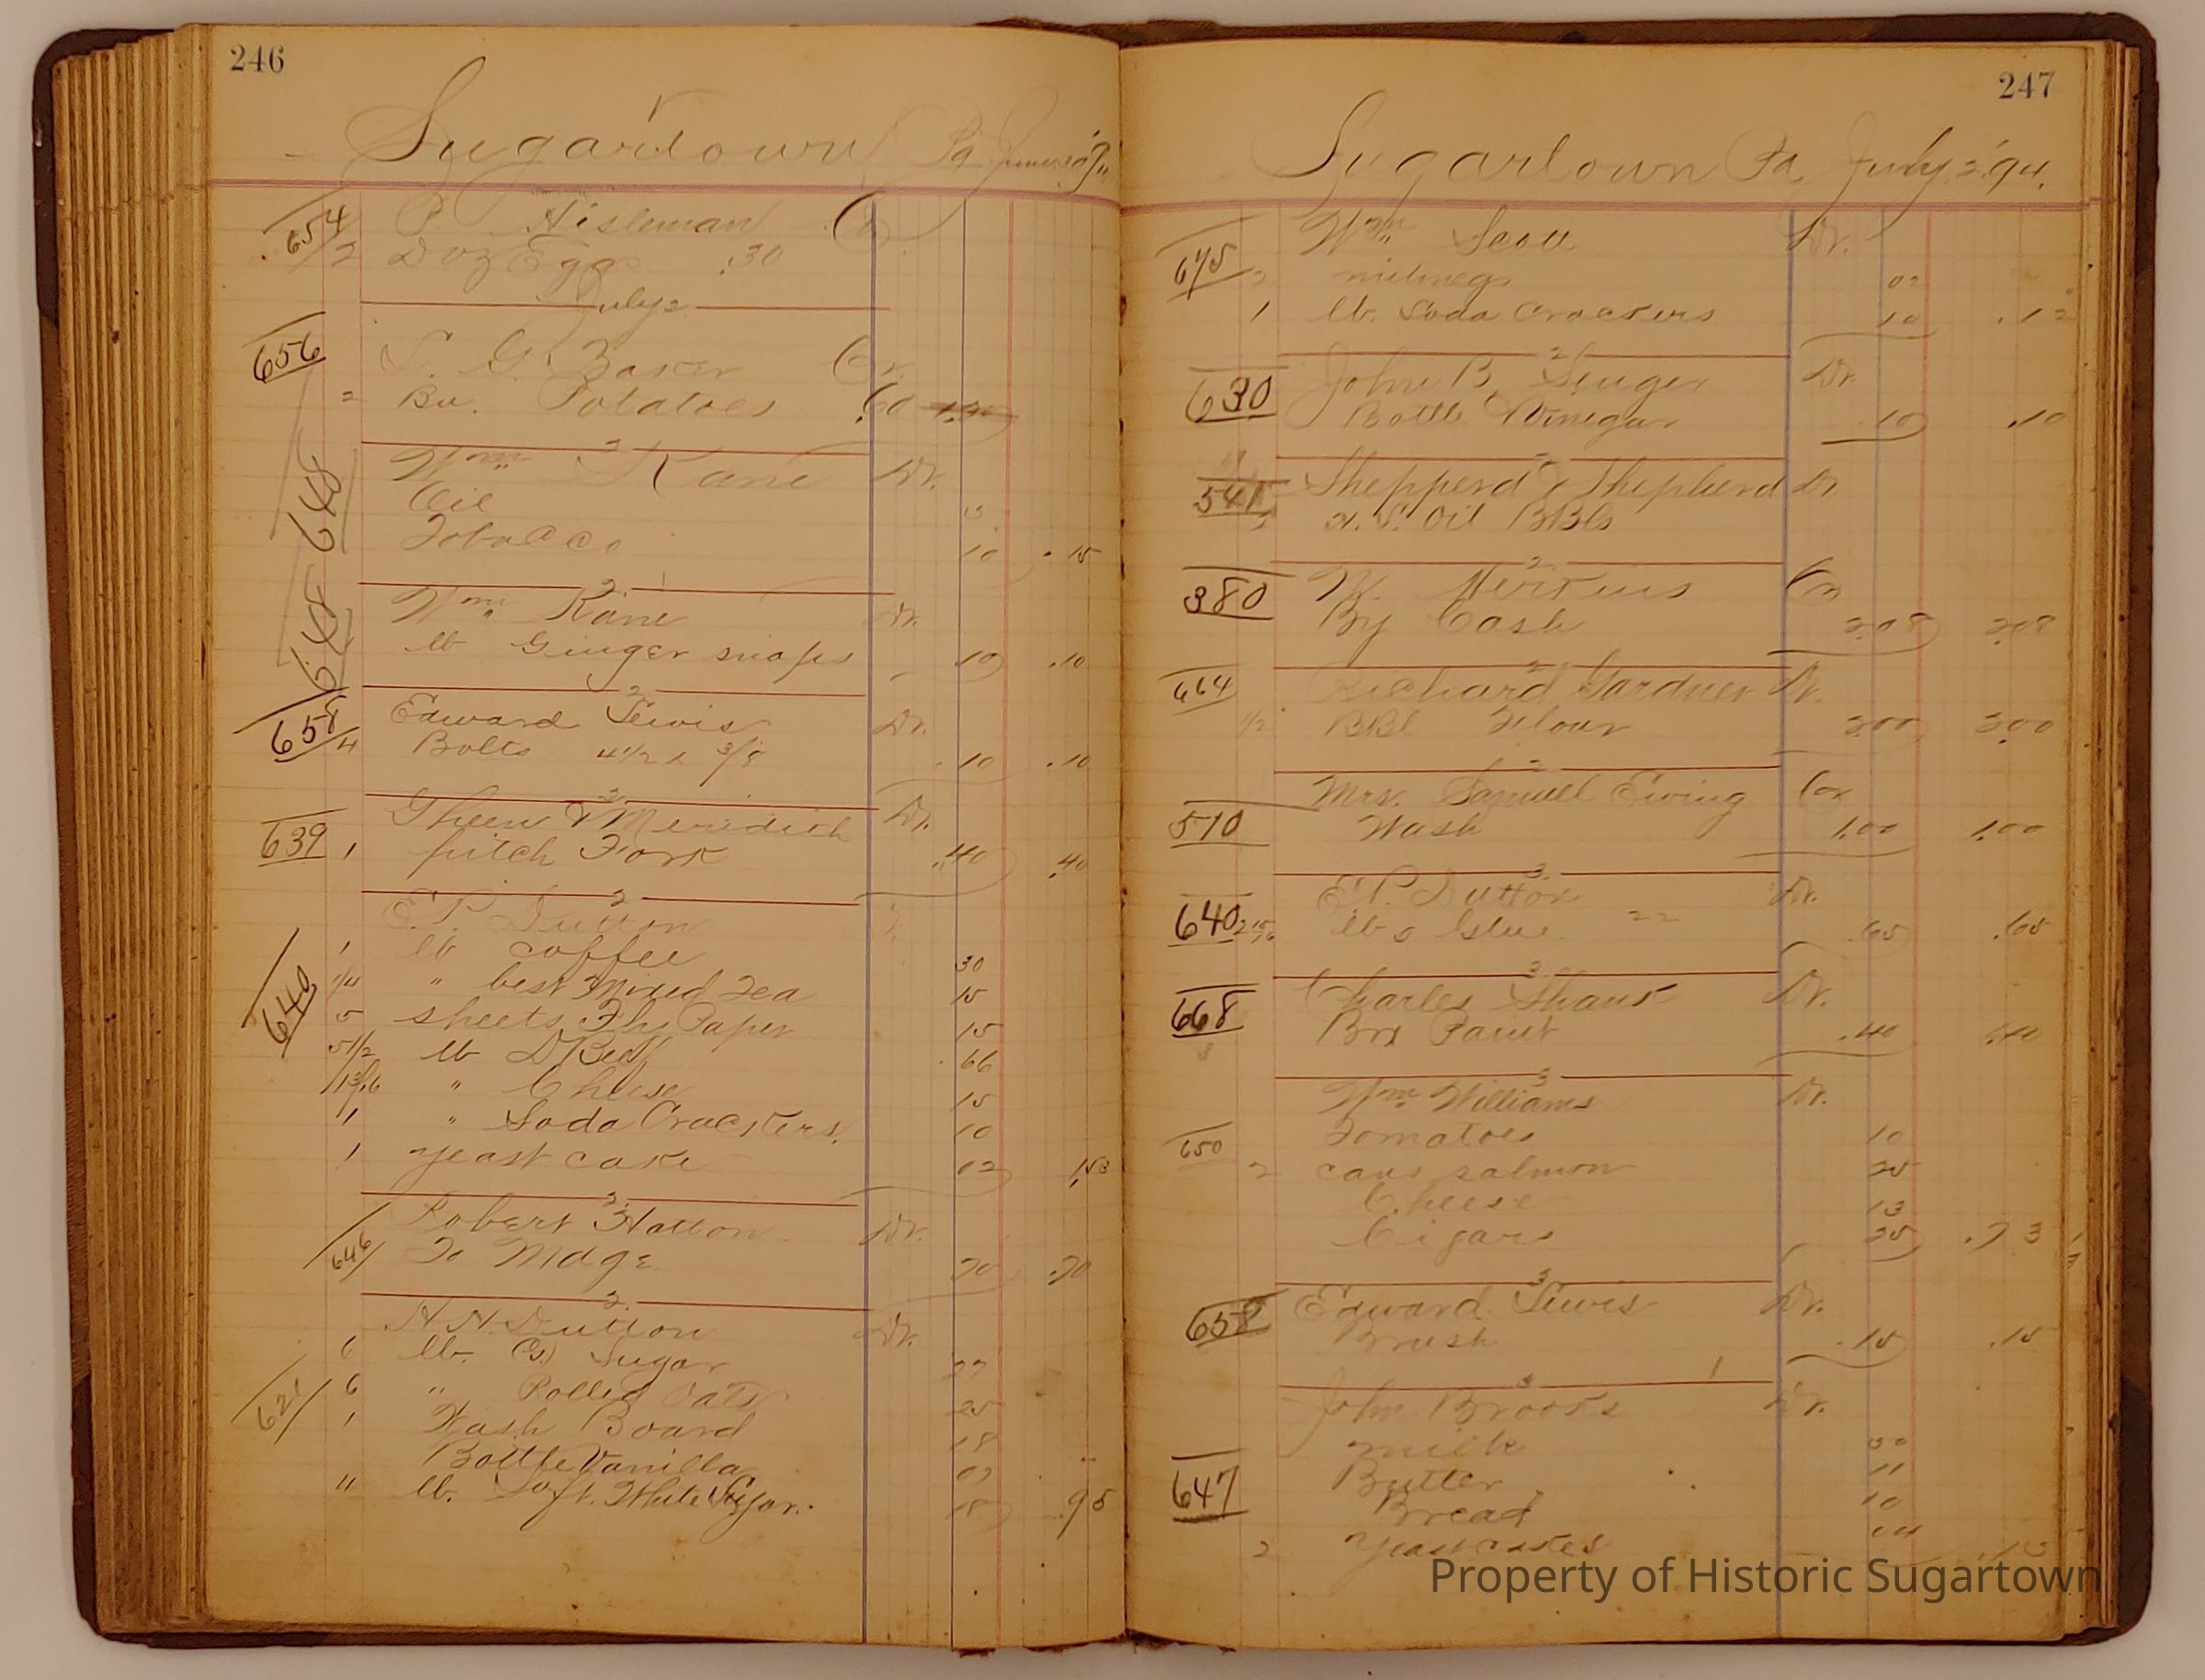 246
Sugartown Pa June 30 '94
654 P. Hisleman Cr
12 Doz Eggs .30
July 2
656 S. G. Baker Cr.
2 Bu. Potatoes .60 1.20
2
648 Wm Kane Dr.
Oil 5
Tobacco 10 .15
2
648 Wm Kane Dr.
lb Ginger snaps .10 .10
2
658 Edward Lewis Dr.
4 Bolts 4 1/2 x 3/8 .10 .10
2
Gheen & Meridith Dr.
639 1 pitch Fork .40 .40
2
E. P. Dutton
1 lb coffee 30
640 1/4 " best Mixed Tea 15
5 sheets Fly Paper 15
5 1/2 lb D Beef 66
13/16 " Cheese 15
1 " Soda Crackers. 10
1 yeast cake 02 1.53
2
Robert Hatton Dr.
646 To Mdge 70 .70
2.
H. H. Dutton Dr.
6 lb. (G.) Sugar 27
621 6 " Rolled Oats 25
1 Wash Board 18
Bottle Vanilla 07
4 lb. Soft White Sugar. 18 .95
247
Sugartown Pa July 2 '94.
Wm Scott Dr.
675 2 nutmegs 02
1 lb. Soda Crackers 10 .12
2
630 John B. Dr.
Bottle Vinegar 10 .10
2
541 Shepperd & Shepherd Dr
Oil BBls
2
380 W. Merkins Cr
By Cash 2.08 2.08
2
664 Richard Gardner Dr.
1/2 BBl Flour 2.00 2.00
2
Mrs. Samuel Ewing Cr
510 Wash 1.00 1.00
3.
E. P. Dutton Dr.
640 2 15/16 lbs Glue 22 .65 .65
3
Charles Dr.
668 Brx Paint .40 .40
3
Wm Williams Dr.
650 Tomatoes 10
2 cans salmon 25
Cheese 13
Cigars 25 .73
3
658 Edward Lewis Dr.
Brush .15 .15
3
John Brooks Dr.
milk 50
647 Butter 11
Bread 10
2 yeast cakes 04
Property of Historic Sugartown